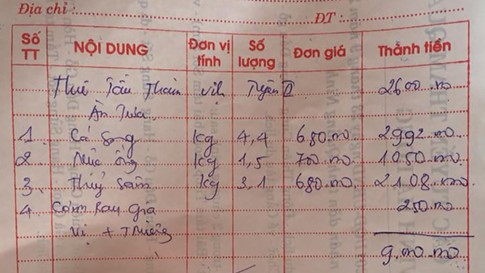 Địa chỉ : ĐT :
Số TT NỘI DUNG Đơn vị tính Số lượng Đơn giá Thành tiền
Thuê Tàu Tham Vịnh Tuyến II 2600.000
Ăn Trưa
1 Cá Song kg 4,4 680.000 2992.000
2 Mực ống kg 1,5 700.000 1050.000
3 kg 3,1 680.000 2108.000
4 Cơm Rau Gia 250.000
Vị +
9.000.000